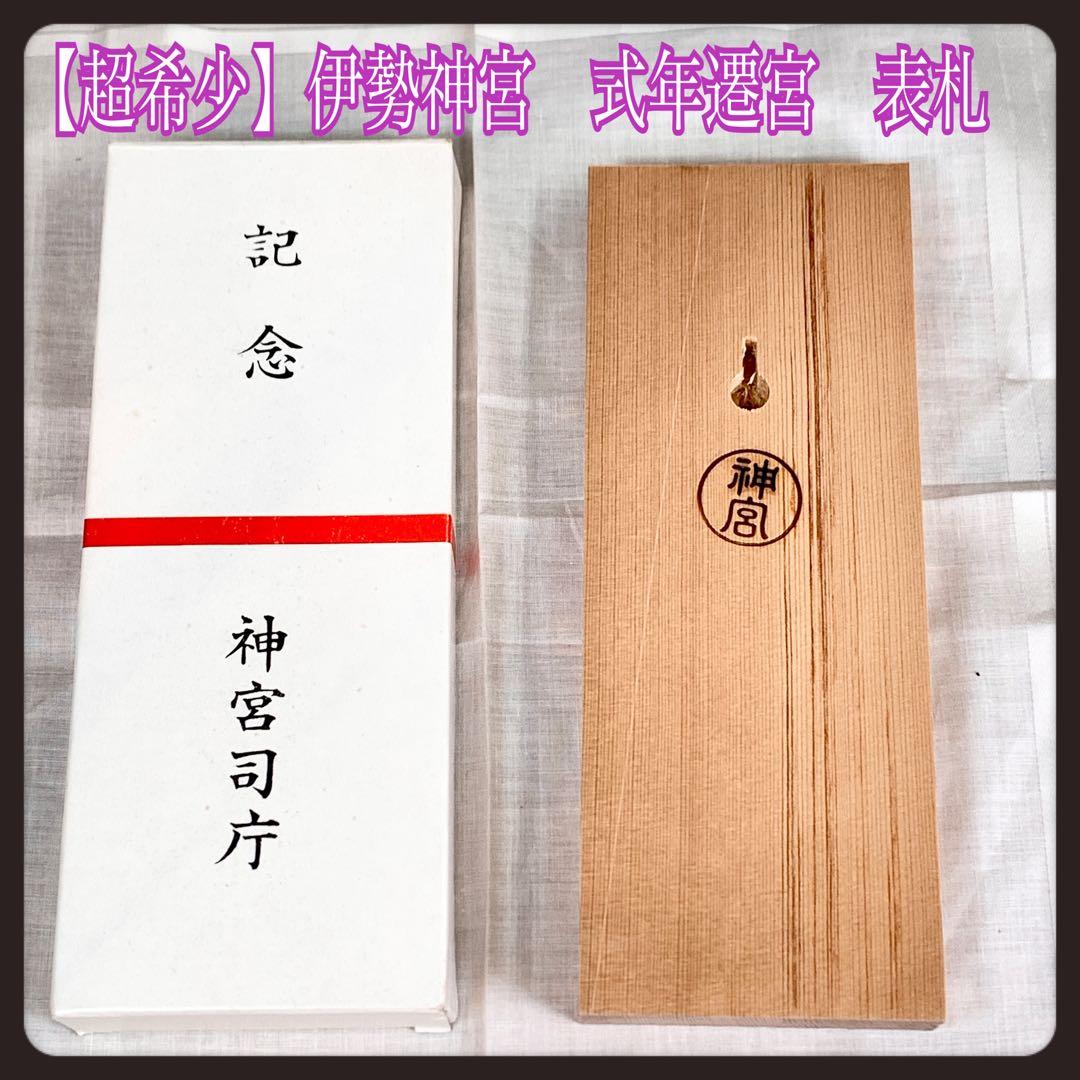 【超希少】伊勢神宮　式年遷宮　表札
記念
神宮司庁
神宮